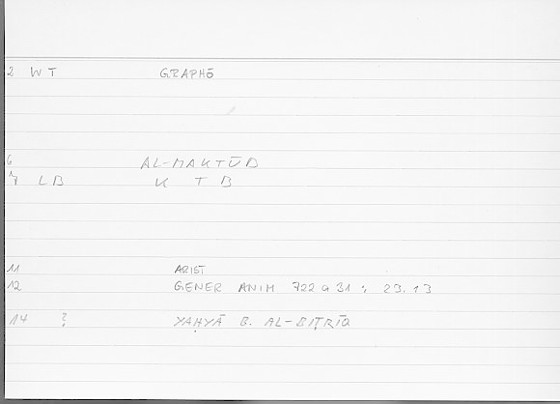 2 WT GRAPHŌ
6 AL-MAKTŪD
7 LB K T B
11 ARIST
12 GENER ANIM 722 a 31 ; 23.13
14 ? YAḤYĀ B. AL-BIṬRĪQ